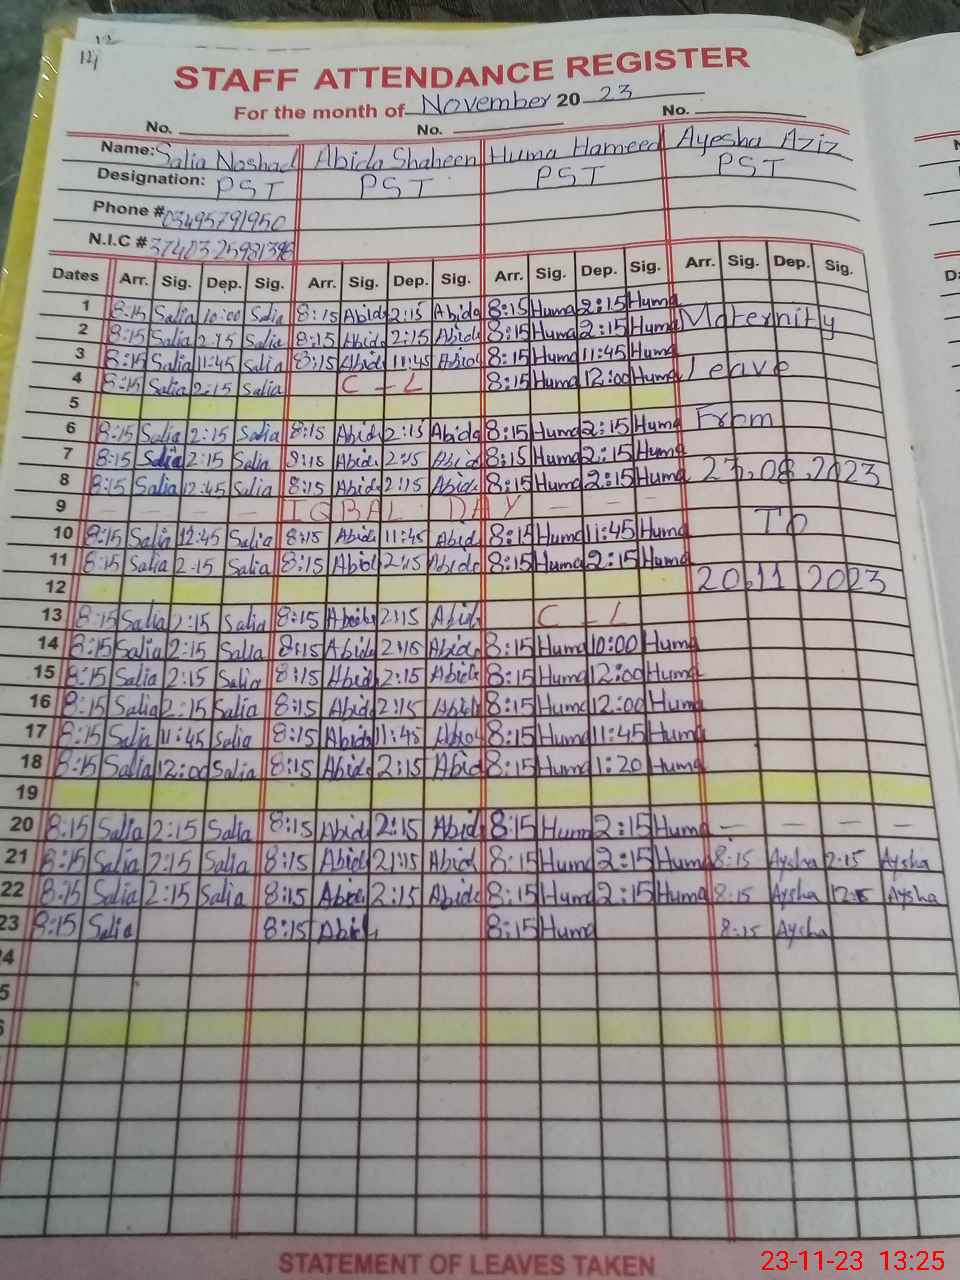 12
STAFF ATTENDANCE REGISTER
For the month of November 20 23
No. No. No.
Name: Salia Noshad Abida Shaheen Huma Hameed Ayesha Aziz
Designation: PST PST PST PST
Phone # 03495791950
N.I.C #
Dates Arr. Sig. Dep. Sig. Arr. Sig. Dep. Sig. Arr. Sig. Dep. Sig. Arr. Sig. Dep. Sig.
1 8:15 Salia 10:00 Salia 8:15 Abida 2:15 Abida 8:15 Huma 2:15 Huma Maternity
2 8:15 Salia 2:15 Salia 8:15 Abida 2:15 Abida 8:15 Huma 2:15 Huma
3 8:15 Salia 11:45 Salia 8:15 Abida 11:45 Abida 8:15 Huma 11:45 Huma
4 8:15 Salia 2:15 Salia C - L 8:15 Huma 12:00 Huma Leave
5
6 8:15 Salia 2:15 Salia 8:15 Abida 2:15 Abida 8:15 Huma 2:15 Huma From
7 8:15 Salia 2:15 Salia 8:15 Abida 2:15 Abida 8:15 Huma 2:15 Huma
8 8:15 Salia 12:45 Salia 8:15 Abida 2:15 Abida 8:15 Huma 2:15 Huma 23.08.2023
9 - - - - IQBAL DAY - - -
10 8:15 Salia 12:45 Salia 8:15 Abida 11:45 Abida 8:15 Huma 11:45 Huma To
11 8:15 Salia 2:15 Salia 8:15 Abida 2:15 Abida 8:15 Huma 2:15 Huma
12 20.11 2023
13 8:15 Salia 2:15 Salia 8:15 Abida 2:15 Abida C - L
14 8:15 Salia 2:15 Salia 8:15 Abida 2:15 Abida 8:15 Huma 10:00 Huma
15 8:15 Salia 2:15 Salia 8:15 Abida 2:15 Abida 8:15 Huma 12:00 Huma
16 8:15 Salia 2:15 Salia 8:15 Abida 2:15 Abida 8:15 Huma 12:00 Huma
17 8:15 Salia 11:45 Salia 8:15 Abida 11:45 Abida 8:15 Huma 11:45 Huma
18 8:15 Salia 12:00 Salia 8:15 Abida 2:15 Abida 8:15 Huma 1:20 Huma
19
20 8:15 Salia 2:15 Salia 8:15 Abida 2:15 Abida 8:15 Huma 2:15 Huma - - - -
21 8:15 Salia 2:15 Salia 8:15 Abida 2:15 Abida 8:15 Huma 2:15 Huma 8:15 Aysha 2:15 Aysha
22 8:15 Salia 2:15 Salia 8:15 Abida 2:15 Abida 8:15 Huma 2:15 Huma 8:15 Aysha Aysha
23 8:15 Salia 8:15 Abida 8:15 Huma 8:15 Aysha
4
5
STATEMENT OF LEAVES TAKEN
23-11-23 13:25